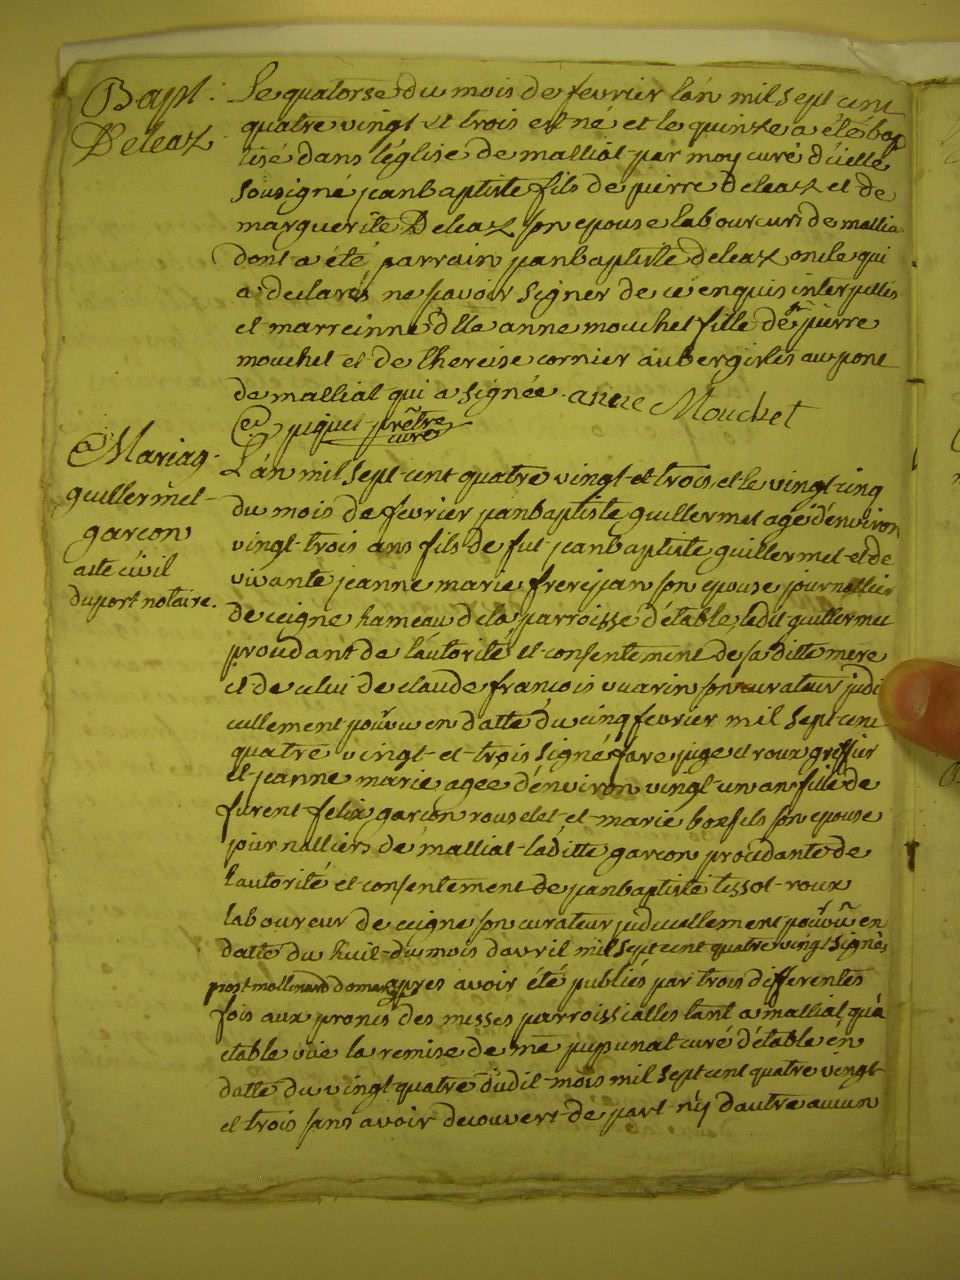 Bapt:
Deleaz
Le quatorse du mois de fevrier lán mil sept cent
quatre vingt et trois est né et le quinze a été bap
tisé dans l'église de malliat par moy curé d'icelle
sousigné jeanbaptiste fils de pierre deleaz et de
marguerite Deleaz son epouse laboureurs de mallia
dont a été parrain jeanbaptiste deleaz oncle qui
a declaré ne sçavoir signer de ce enquis interpellés
et marreinne dlle anne mouchet fille de sr pierre
mouchet et de thereise cornier aubergistes au pont
de malliat qui a signée. anne Mouchet
piquet prêtre
curé
Mariag.
guillermet
garcon
acte civil
duport notaire.
L'án mil sept cent quatre vingt et trois, et le vingt cinq
du mois de fevrier jeanbaptiste guillermet agé d'environ
vingt-trois ans fils de fut jeanbaptiste guillermet et de
vivante jeanne marie frerejean son epouse journallier
de ceigne hameau de la parroisse d'étable, ledit guillermet
procédant de l'autorité et consentement de sa ditte mere
et de celui de claude francois vuarin son curateur judi
ciellement pourvu en datte du cinq fevrier mil sept cent
quatre vingt et trois signé favre juge et roux greffier
et jeanne marie agée d'environ vingt-un an fille de
furent felix garçon rouselet et marie bonfils son epouse
journalliers de malliat laditte garcon procédante de
l'autorité et consentement de jeanbaptiste tissot-roux
laboureur de ceigne son curateur judiciellement pourvû en
datte du huit du mois d'avril mil sept cent quatre vingt signés
apres avoir été publiés par trois differentes
fois aux pronés des messes parroissialles tant a malliat qu'à
étable vüe la remise de me curé d'étable en
datte du vingt quatre dudit mois mil sept cent quatre vingt
et trois sans avoir decouvert de part n'y d'autre aucun